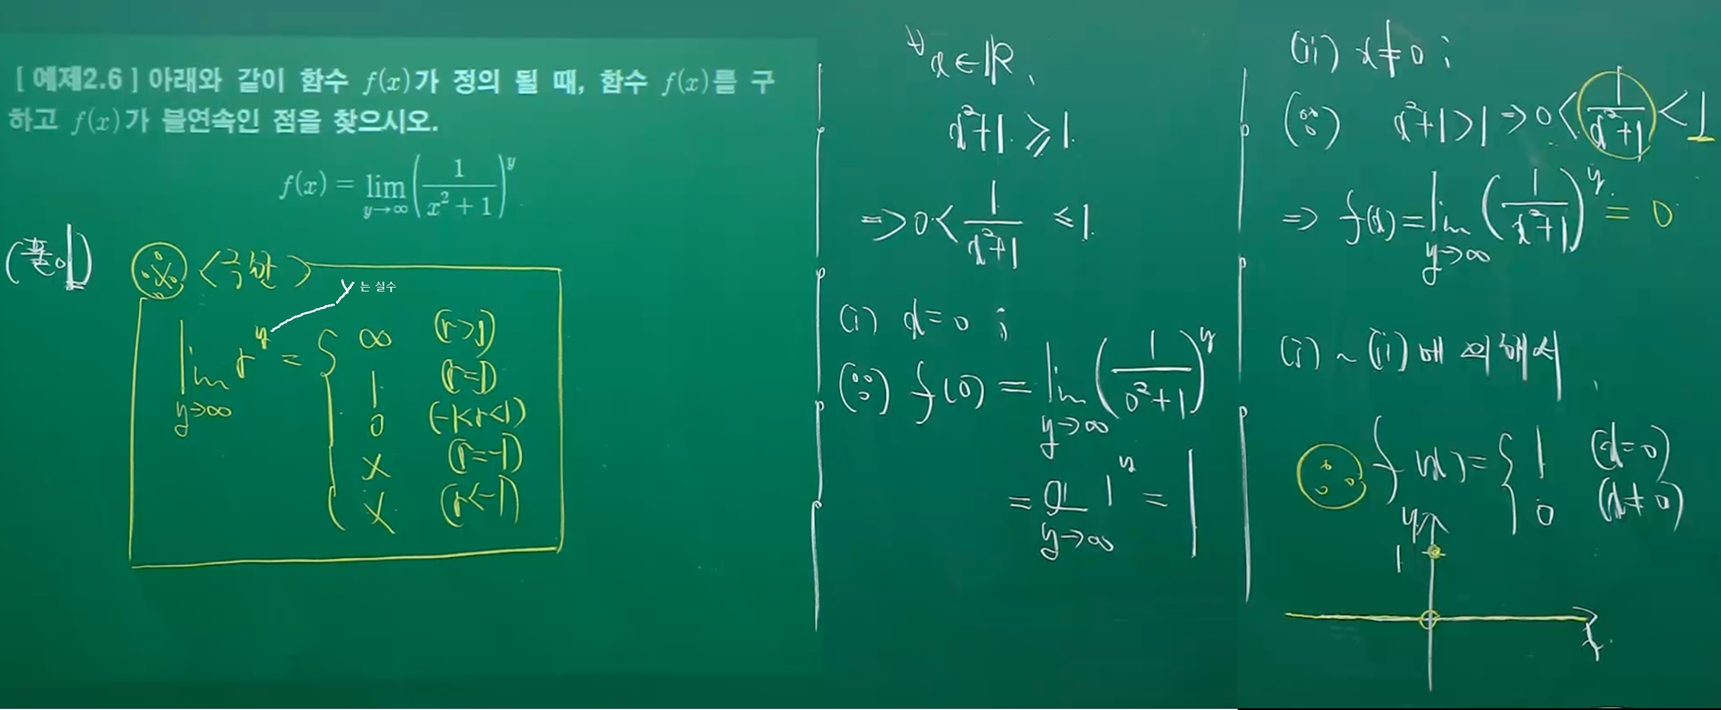 [ 예제2.6 ] 아래와 같이 함수 f(x)가 정의 될 때, 함수 f(x)를 구
하고 f(x)가 불연속인 점을 찾으시오.
f(x) = lim_{y→∞} (1/(x²+1))^y
(풀이)
※ <극한>
y 는 실수
lim_{y→∞} r^y = { ∞ (r>1)
1 (r=1)
0 (-1<r<1)
X (r=-1)
X (r<-1)
∀x∈ℝ,
x²+1 ≥ 1.
⇒ 0 < 1/(x²+1) ≤ 1.
(i) x=0 ;
(∵) f(0) = lim_{y→∞} (1/(0²+1))^y
= lim_{y→∞} 1^y = 1
(ii) x≠0 ;
(∵) x²+1>1 ⇒ 0 < 1/(x²+1) < 1
⇒ f(x) = lim_{y→∞} (1/(x²+1))^y = 0
(i) ~ (ii)에 의해서,
∴ f(x) = { 1 (x=0)
0 (x≠0)
y
1
x